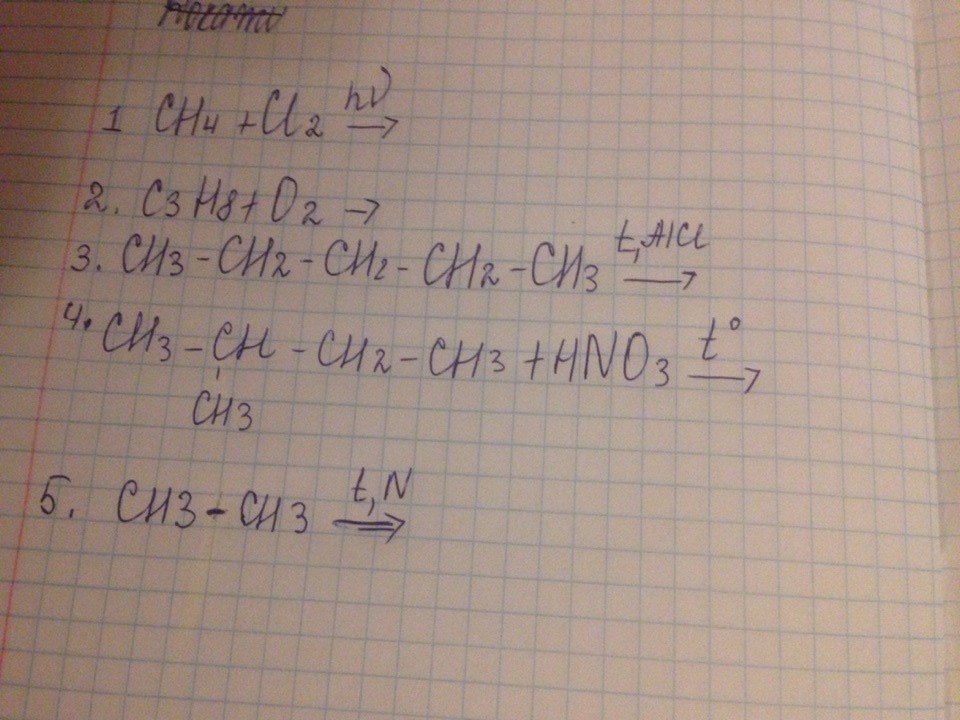 1 CH4 + Cl2 hν →
2. C3H8 + O2 →
3. CH3 - CH2 - CH2 - CH2 - CH3 t, AlCl →
4. CH3 - CH - CH2 - CH3 + HNO3 t° →
CH3
5. CH3 - CH3 t, N ⇒